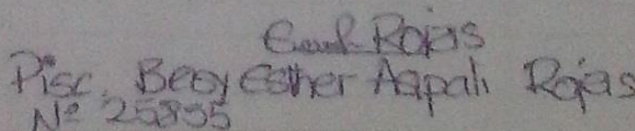 Rojas
Pisc. Betty Esther Aapali Rojas
Nº 25895